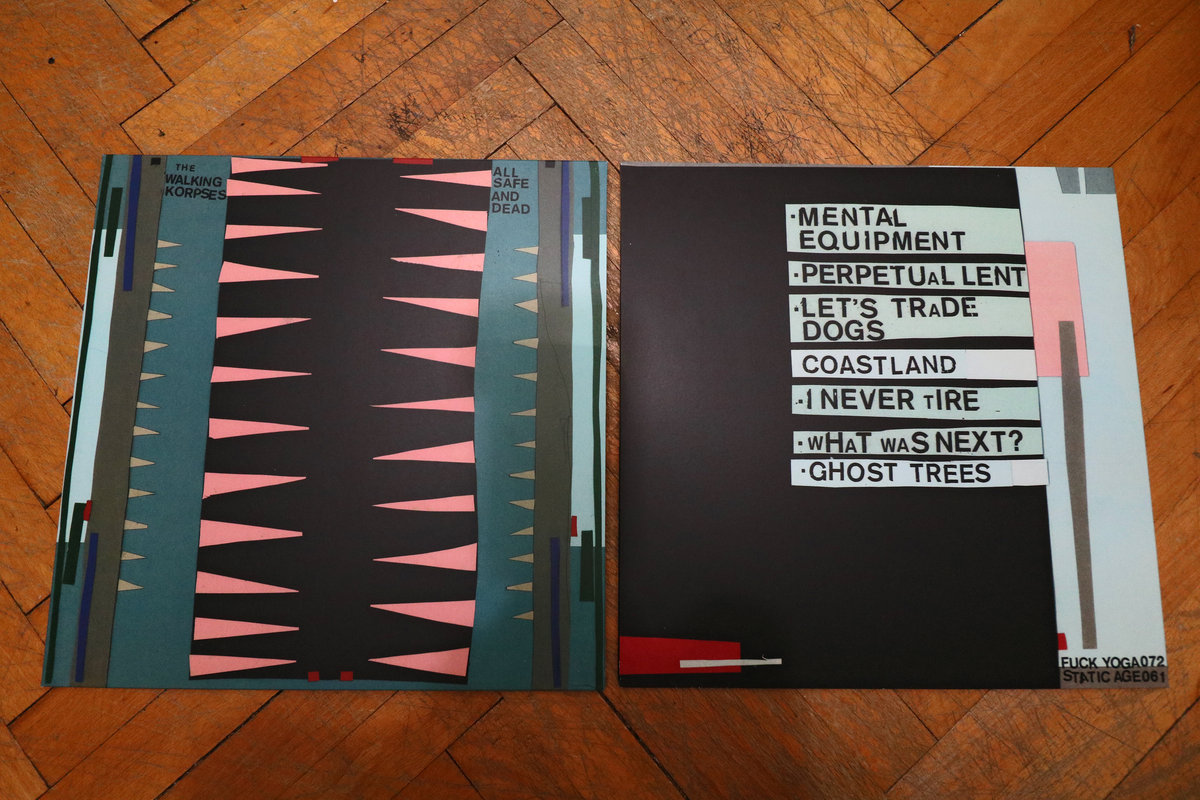 THE
WALKING
KORPSES
ALL
SAFE
AND
DEAD
·MENTAL
EQUIPMENT
·PERPETUAL LENT
·LET'S TRADE
DOGS
COASTLAND
·I NEVER TIRE
·WHAT WAS NEXT?
·GHOST TREES
FUCK YOGA072
STATIC AGE061